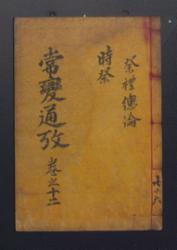 祭禮總論
時祭
常變通攷 卷之二十二